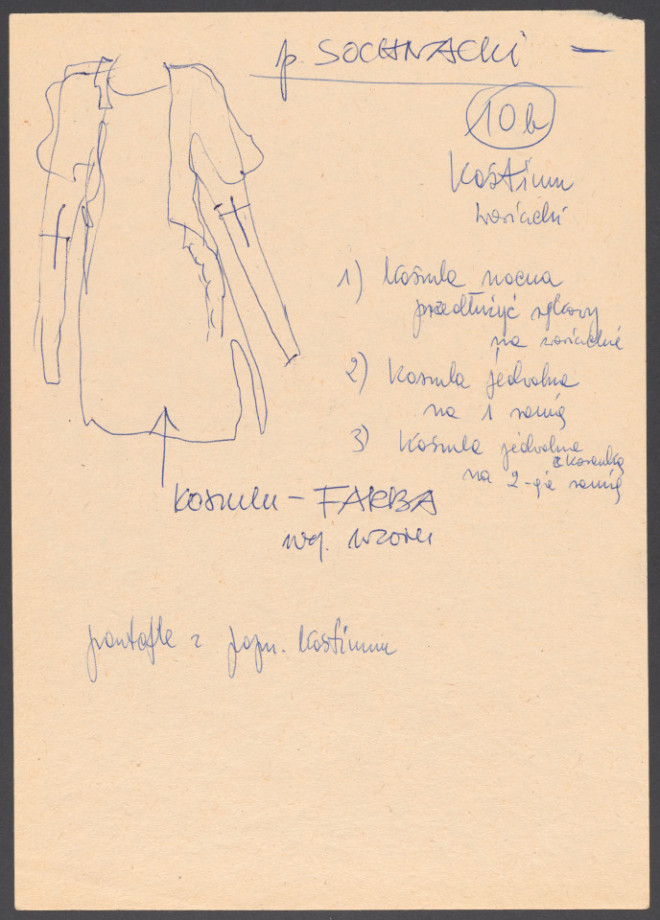 p. SOCHNACKI —
10b
Kostium
wariacki
1) Koszula nocna
przedłużyć rękawy
na wariackie
2) Koszula jedwabna
na 1 ramię
3) Koszula jedwabna
z koronką
na 2-gie ramię
Koszula - FARBA
wg. wzoru
pantofle z pop. kostiumu